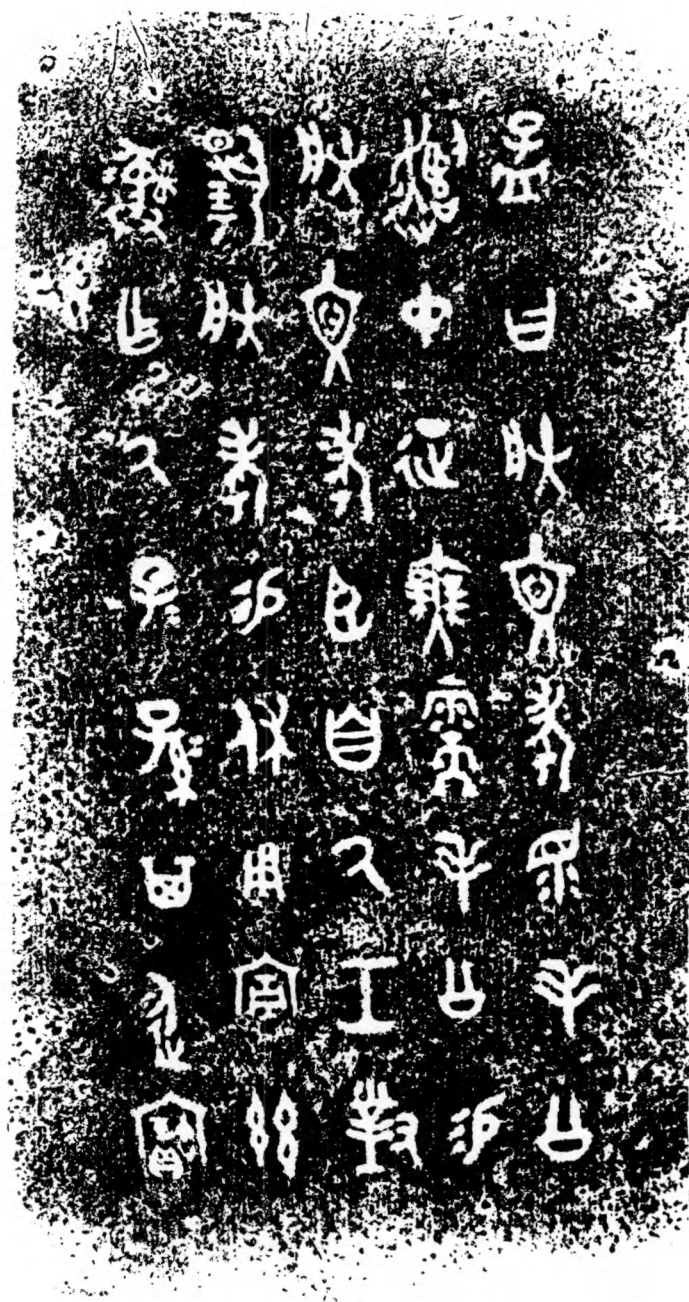 孟曰朕文考眔毛公
遣中征無需毛公易
朕文考臣自厥工對
揚朕考易休用宣茲
彝乍厥子=孫=其永寶